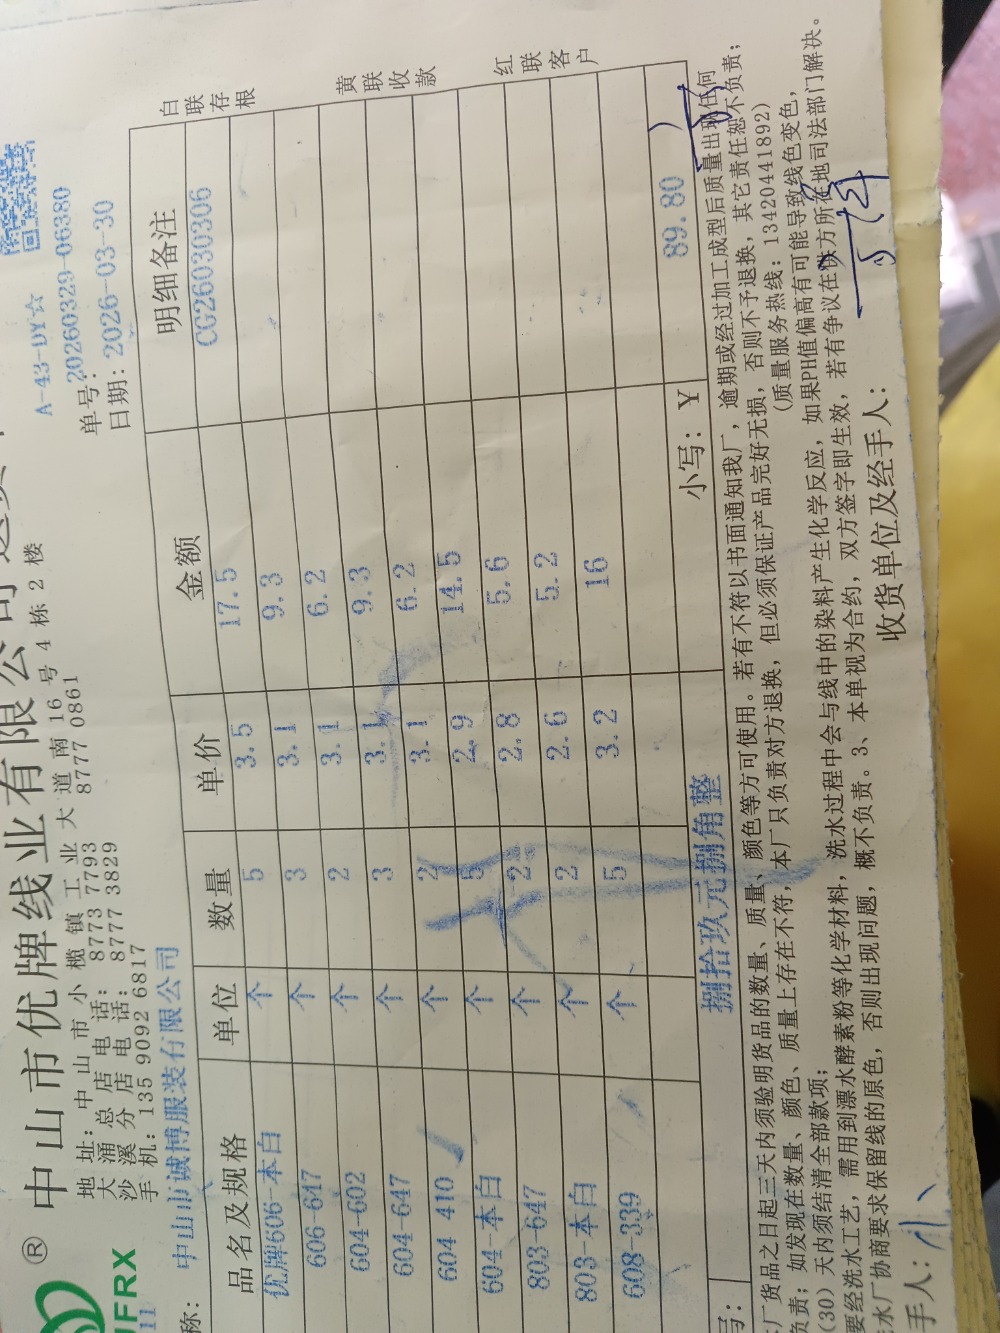 ®
中山市优牌线业有限公司
UFRX
11
地址：中山市小榄镇工业大道南16号4栋2楼
大涌总店电话：8773 7793 8777 0861
沙溪分店电话：8777 3829
手机：135 9092 6817
A-43-DY☆
单号：20260329-06380
日期：2026-03-30
称：中山市诚博服装有限公司
品名及规格 单位 数量 单价 金额 明细备注
优牌606-本白 个 5 3.5 17.5 CG26030306
606-647 个 3 3.1 9.3
604-602 个 2 3.1 6.2
604-647 个 3 3.1 9.3
604-410 个 2 3.1 6.2
604-本白 个 5 2.9 14.5
803-647 个 2 2.8 5.6
803-本白 个 2 2.6 5.2
608-339 个 5 3.2 16
写： 捌拾玖元捌角整 小写：Y 89.80
白联存根
黄联收款
红联客户
厂货品之日起三天内须验明货品的数量、质量、颜色等方可使用。若有不符以书面通知我厂，逾期或经过加工成型后质量出现任何
负责；如发现在数量、颜色、质量上存在不符，本厂只负责对方退换，但必须保证产品完好无损，否则不予退换，其它责任恕不负责；
(30）天内须结清全部款项； （质量服务热线：13420441892）
要经洗水工艺，需用到漂水酵素粉等化学材料，洗水过程中会与线中的染料产生化学反应，如果PH值偏高有可能导致线色变色，
水厂协商要求保留线的原色，否则出现问题，概不负责。3、本单视为合约，双方签字即生效，若有争议在供方所在地司法部门解决。
手人： 收货单位及经手人：